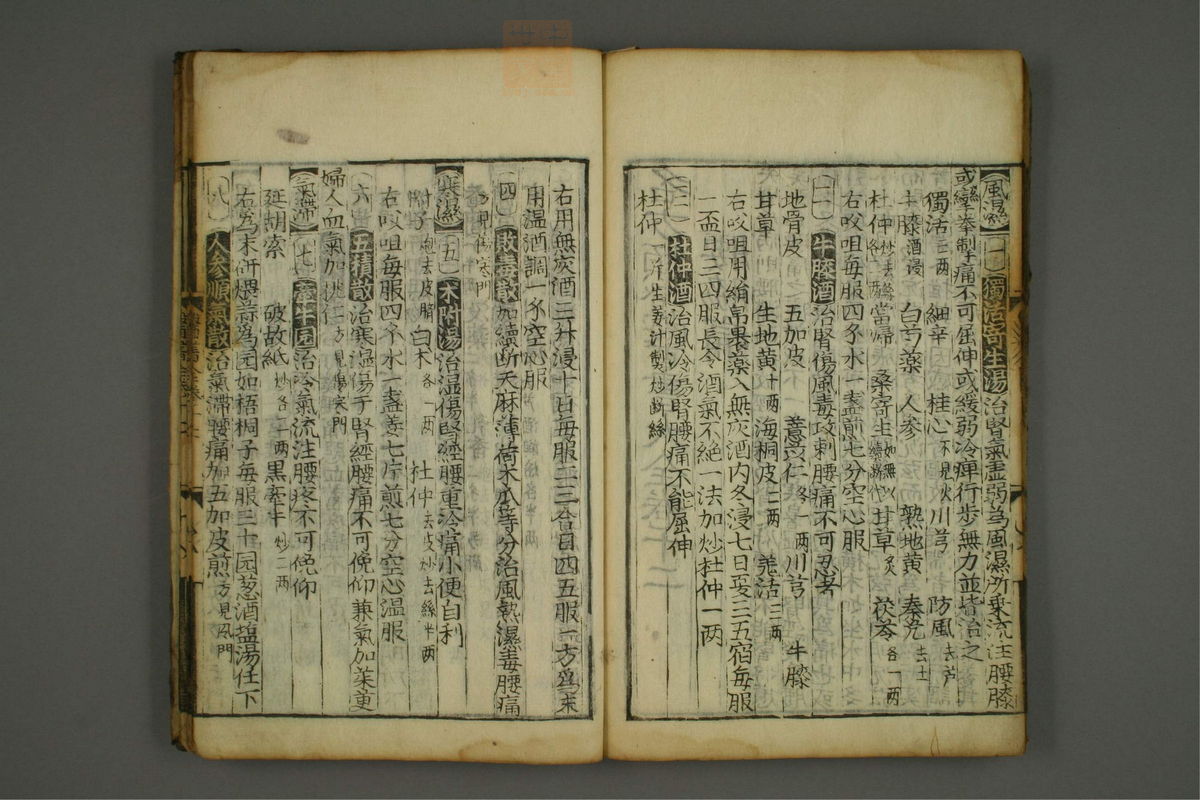 風濕 一 獨活寄生湯 治腎氣虛弱為風濕所乘流注腰膝
或攣拳掣痛不可屈伸或緩弱冷痺行步無力並皆治之
獨活三兩 細辛 桂心不見火 川芎 防風去芦
牛膝酒浸 白芍藥 人參 熟地黃 秦艽去土
杜仲炒去絲各二兩 當歸 桑寄生如無以續斷代 甘草炙 茯苓各一兩
右㕮咀每服四錢水一盞煎七分空心服
二 牛膝酒 治腎傷風毒攻刺腰痛不可忍者
地骨皮 五加皮 薏苡仁各一兩 川芎 牛膝
甘草 生地黃十兩 海桐皮二兩 羌活二兩
右㕮咀用絹帛裹藥入無灰酒内冬浸七日夏三五宿每服
一盃日三四服長令酒氣不絕一法加炒杜仲一兩
三 杜仲酒 治風冷傷腎腰痛不能屈伸
杜仲一斤生姜汁製炒斷絲
右用無灰酒三升浸十日每服二三合日四五服一方為末
用温酒調一錢空心服
四 敗毒散 加續斷天麻薄荷木瓜等分治風熱濕毒腰痛
方見傷寒門
寒濕 五 朮附湯 治濕傷腎經腰重冷痛小便自利
附子炮去皮臍 白朮各一兩 杜仲去皮炒去絲半兩
右㕮咀每服四錢水一盞姜七片煎七分空心温服
六 五積散 治寒濕傷于腎經腰痛不可俛仰兼氣加茱萸
婦人血氣加桃仁方見傷寒門
氣滯 七 牽牛圎 治冷氣流注腰疼不可俛仰
延胡索 破故紙炒各一兩 黑牽牛炒二兩
右為末研煨蒜為圎如梧桐子每服三十圎葱酒塩湯任下
八 人參順氣散 治氣滯腰痛加五加皮煎方見風門